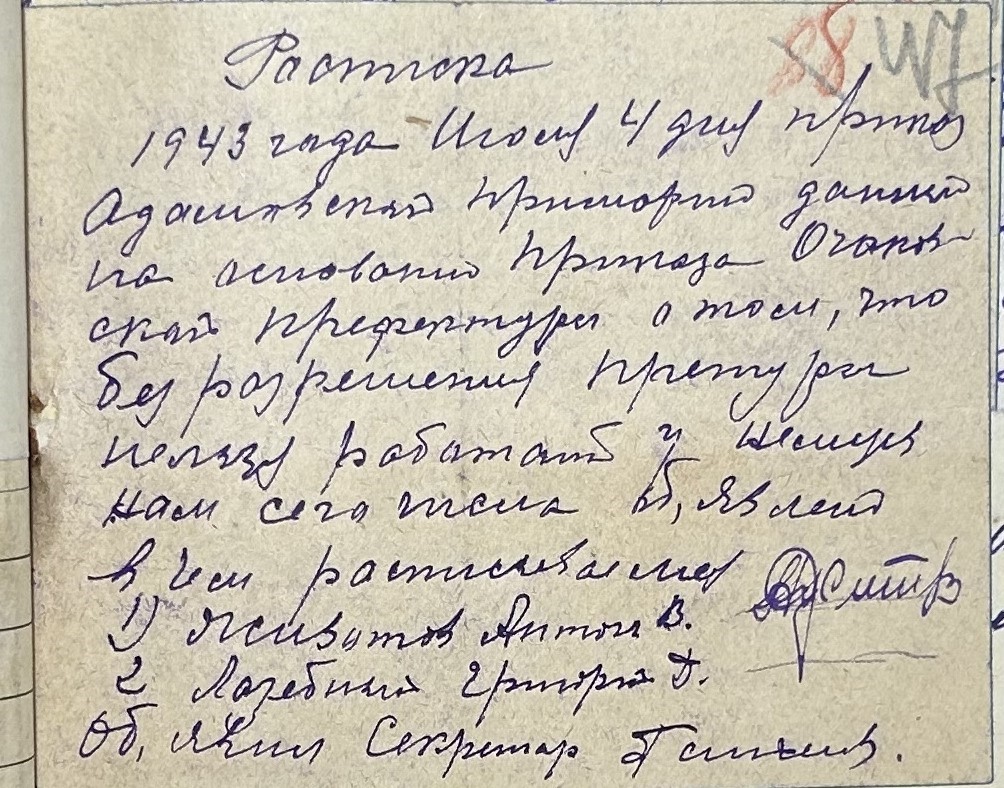 88
Расписка
1943 года Июля 4 дня приказ
Адамовской Примории данный
на основании приказа Очаков-
ской префектуры о том, что
без разрешения претуры
нелязя работать у немцев
нам сего числа об, явлен
в чем расписываемся
1) Антон В.
2 Лазебный Григорий Д.
Об, явил Секретар